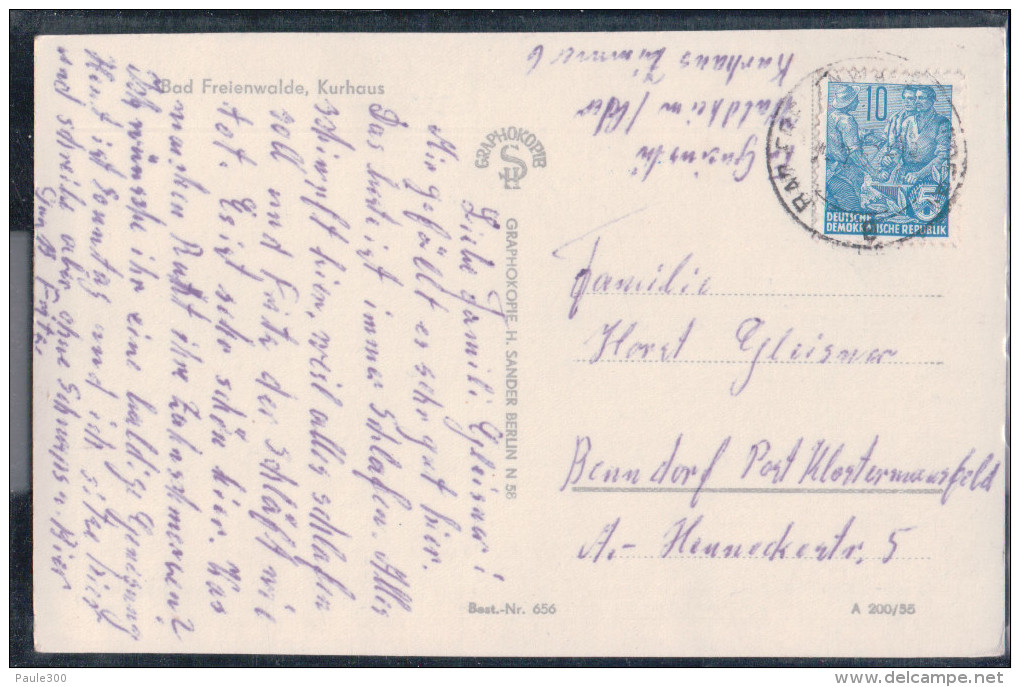 Bad Freienwalde, Kurhaus
Liebe Famili Gleisner!
Mir gefällt es sehr gut hir.
Das beste ist immer Schlafen. Alles
schimpft hier, weil alles schlafen
soll und Fritz der schläft wie
tot. Es ist sehr schön hier. Was
machen Rutt ihre Zahnschmerzen?
Ich wünsche ihr eine baldige Genesung
Heut ist Sonntag und ich sitze hier
und schreibe aber ohne Schnaps u. Bier
Gruß Fritz
Kurhaus Zimmer 6
Waldheim /
GRAPHOKOPIE
GRAPHOKOPIE H. SANDER BERLIN N 58
10
5
DEUTSCHE
DEMOKRATISCHE REPUBLIK
Familie
Horst Gleisner
Benndorf Post Klostermansfeld
A.- Henneckestr. 5
Best.-Nr. 656
A 200/55
Paule300
www.delcampe.net